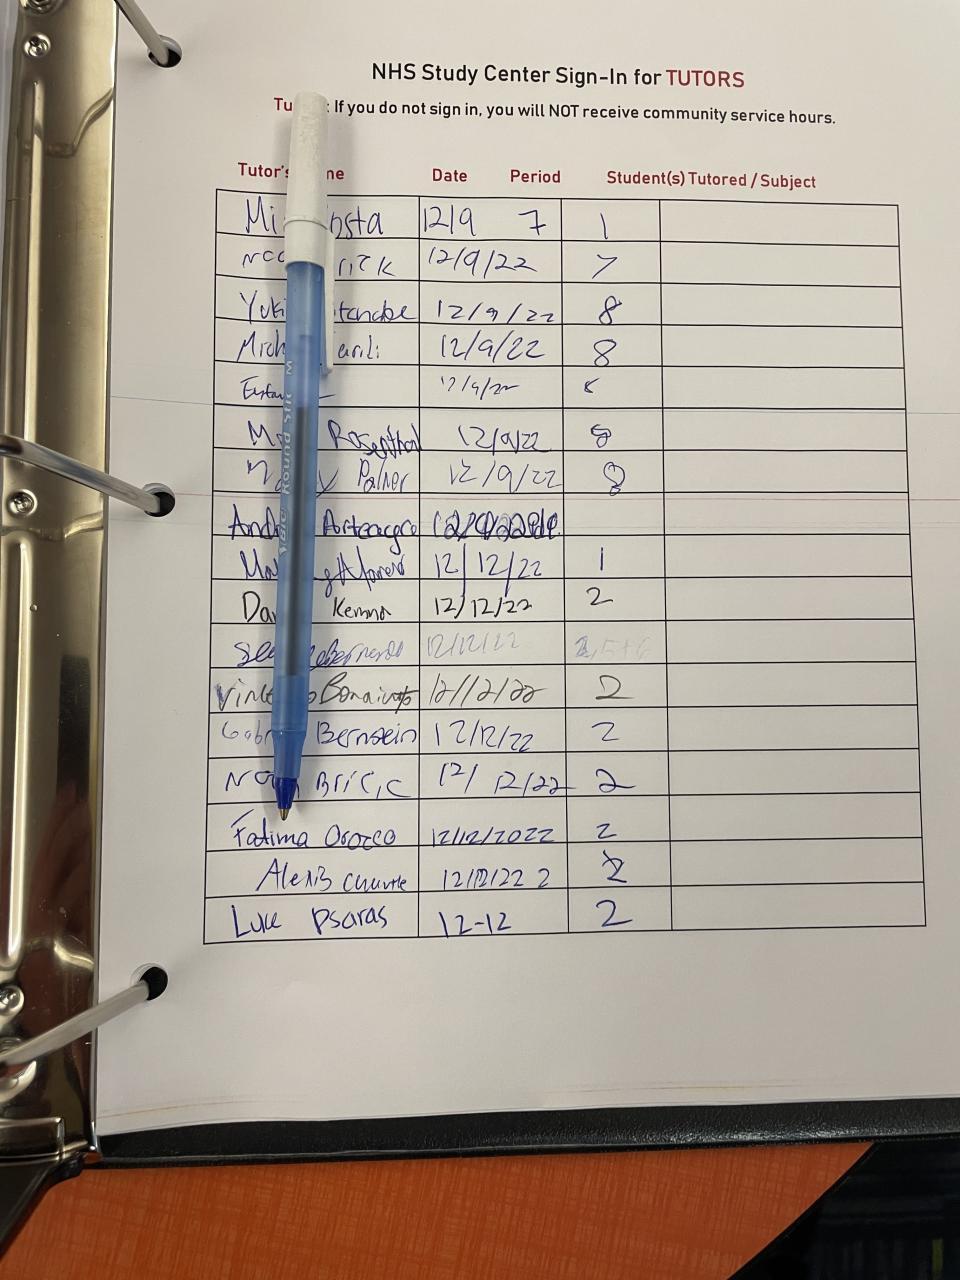 NHS Study Center Sign-In for TUTORS
Tu : If you do not sign in, you will NOT receive community service hours.
Tutor's me Date Period Student(s) Tutored / Subject
Mi osta 12/9 7 1
rick 12/9/22 7
Yuki tanabe 12/9/22 8
Mich arili 12/9/22 8
12/9/22
M Rosenthal 12/9/22 8
Palmer 12/9/22 8
Andr Arteaga
Ma 12/12/22 1
Da Kemna 12/12/22 2
12/12/22
Vince 12/12/22 2
Gabr Bernstein 12/12/22 2
Noa Bricic 12/12/22 2
Fatima Orozco 12/12/2022 2
Alexis 12/12/22 2 2
Luke Psaras 12-12 2
BIC Round Stic M